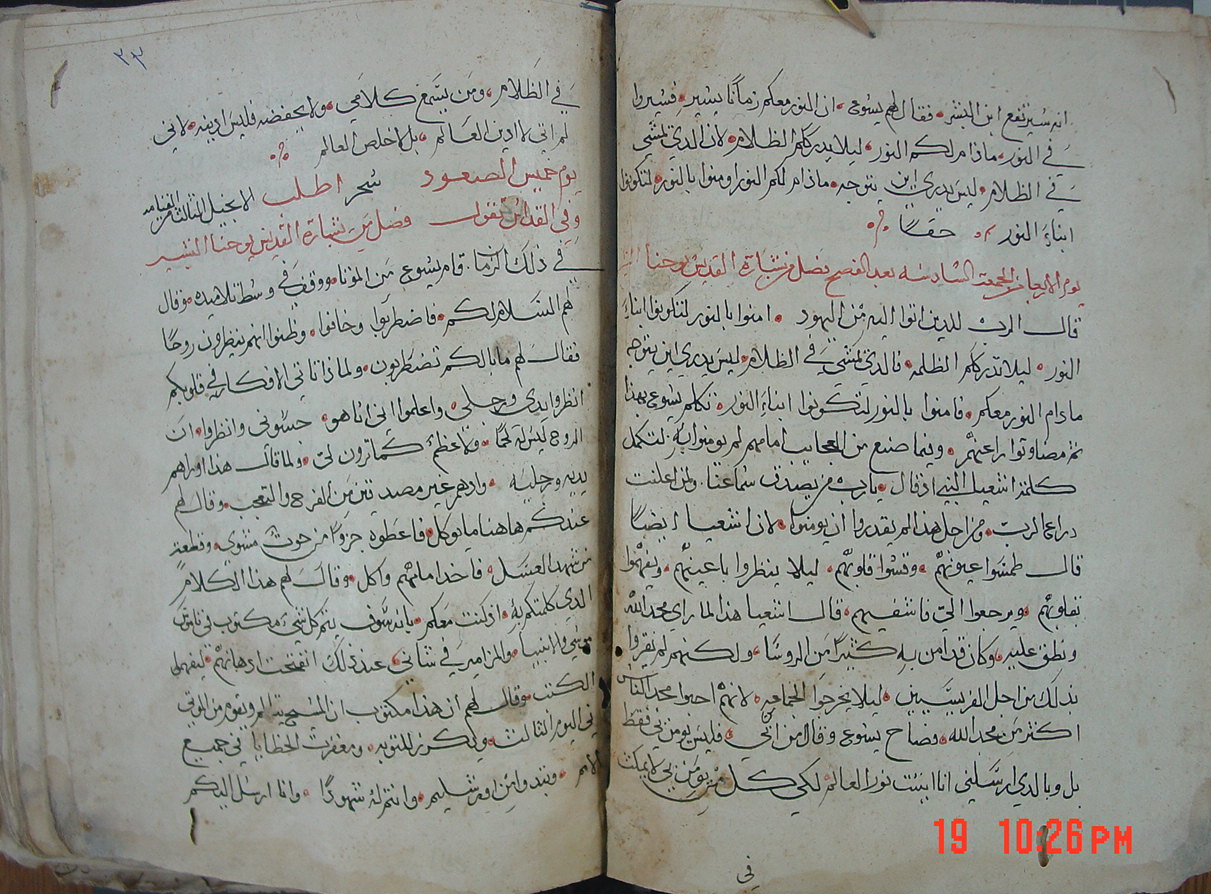 انه سيرتفع ابن البشر فقال لهم يسوع ان النور معكم زمانًا يسير فسيروا
في النور ماذام لكم النور ليلا يدرككم الظلام لان الدي يمشي
في الظلام ليس يدري اين يتوجه ماذام لكم النور اومنوا بالنور لتكونوا
ابناء النور حقًا
يوم الاربعا من الجمعة السادسه بعد الفصح فصل من بشارة القديس يوحنا
قال الرب للدين اتوا اليه من اليهود امنوا بالنور لتكونوا ابناء
النور ليلا تدرككم الظلمه فالدي يمشي في الظلام ليس يدري اين يتوجه
مادام النور معكم فامنوا بالنور لتكونوا ابناء النور تكلم يسوع بهذا
ثم مضا وتوارا عنهم وفيما صنع من العجايب امامهم لم يومنوا به لتكمل
كلمة اشعيا النبي اذ قال يارب من يصدق سماعنا ولمن اعلنت
دراع الرب من اجل هذا لم يقدروا ان يومنوا لان اشعيا ايضًا
قال طمسوا عيونهم وقسوا قلوبهم ليلا ينظروا باعينهم ويفهموا
بقلوبهم ويرجعوا الي فاشفيهم قال اشعيا هذا لما راي مجد الله
ونطق عليه وكان قد امن به كثيرًا من الروسا ولكنهم لم يقروا
بدلك من اجل الفريسيين ليلا يخرجوا الجماعه لانهم احبوا مجد الناس
اكثر من مجد الله فصاح يسوع وقال من امن بي فليس يومن بي فقط
بل وبالدي ارسلني انا اتيت نورا لعالم لكي كل من يومن بي لا يمكث
في
٣٣
في الظلام ومن يسمع كلامي ولا يحفضه فليس ادينه لاني
لم اتي لادين العالم بل لاخلص العالم
يوم خميس الصعود سحر اطلب الانجيل الثالث من القيامه
وفي القداس تقول فصل من بشارة القديس يوحنا البشير
في ذلك الزمان قام يسوع من الموتا ووقف في وسط تلاميده وقال
لهم السلام لكم فاضطربوا وخافوا وظنوا انهم ينظرون روحًا
فقال لهم مابالكم تضطربون ولماذا تاتي الافكار في قلوبكم
انظروا يدي ورجلي واعلموا اني انا هو جسوني وانظروا ان
الروح ليس له لحمًا ولا عظمٌ كما ترون لي ولما قال هذا اوراهم
يديه ورجليه واد هم غير مصدقين من الفرح والتعجب وقال لهم
عندكم هاهنا مايوكل فاعطوه جزوًا من حوت مشوي وقطعة
من شهد العسل فاخد امامهم واكل وقال لهم هذا الكلام
الدي كلمتكم به اذ كنت معكم بانه سوف يتم كل شي مكتوب في ناموس
موسي والانبيا والمزامير في شاني عند ذلك انفتحت ادهانهم ليفهموا
الكتب وقال لهم ان هذا مكتوب ان المسيح يتالم ويقوم من الموتي
في اليوم الثالث ويكرز بالتوبه ومغفرت الخطايا في جميع
الامم وتبتدوا من اورشليم وانتم له شهودًا وانا ارسل اليكم
19 10:26 PM